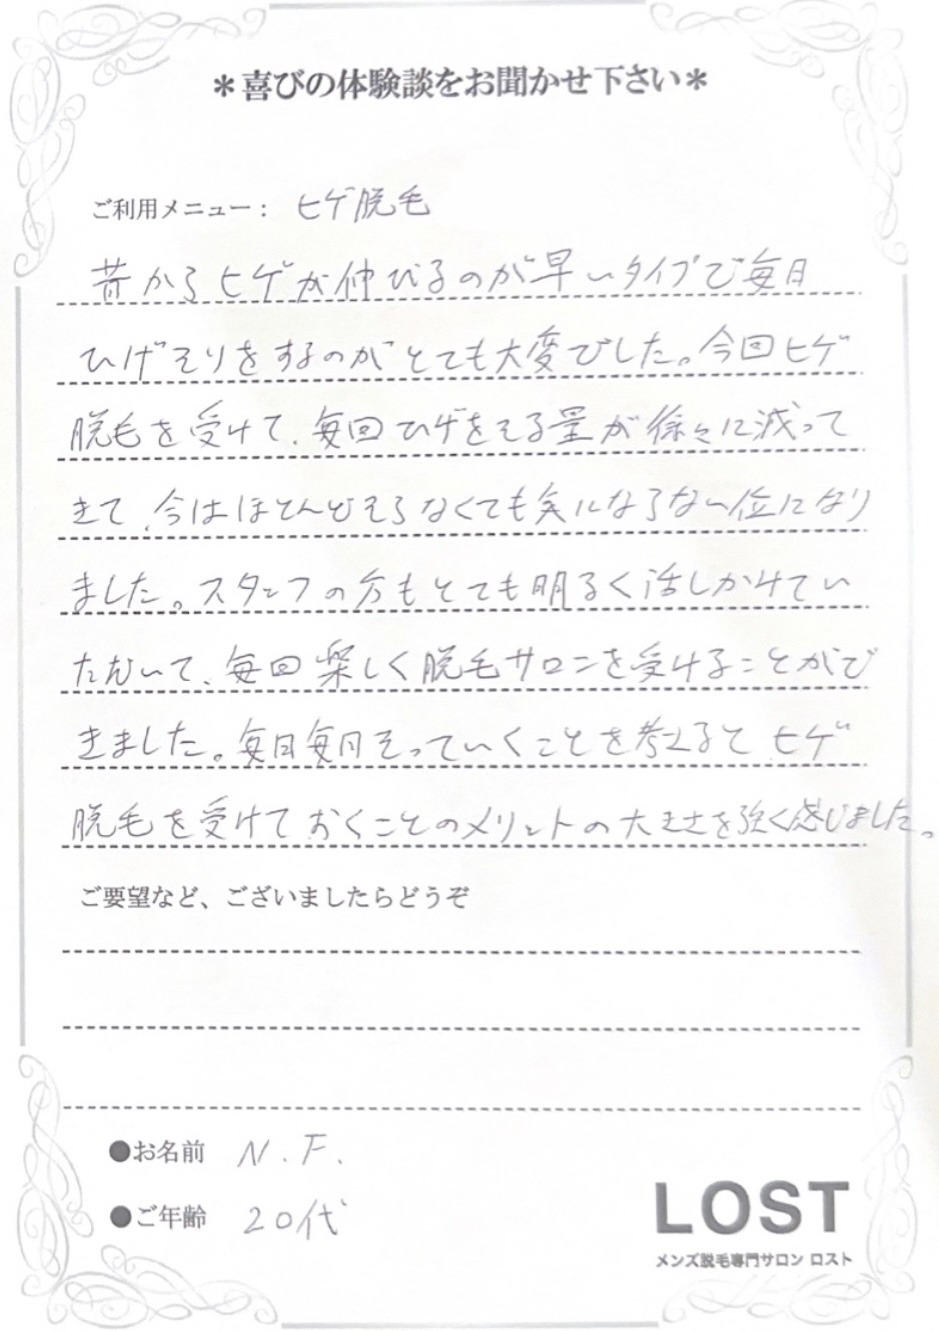 ＊喜びの体験談をお聞かせ下さい＊
ご利用メニュー： ヒゲ脱毛
昔からヒゲが伸びるのが早いタイプで毎日
ひげそりをするのがとても大変でした。今回ヒゲ
脱毛を受けて、毎回ひげをそる量が徐々に減って
きて、今はほとんどそらなくても気にならない位になり
ました。スタッフの方もとても明るく話しかけてい
ただいて、毎回楽しく脱毛サロンを受けることがで
きました。毎日毎日そっていくことを考えるとヒゲ
脱毛を受けておくことのメリットの大きさを強く感じました。
ご要望など、ございましたらどうぞ
●お名前 N.F.
●ご年齢 20代
LOST
メンズ脱毛専門サロン ロスト